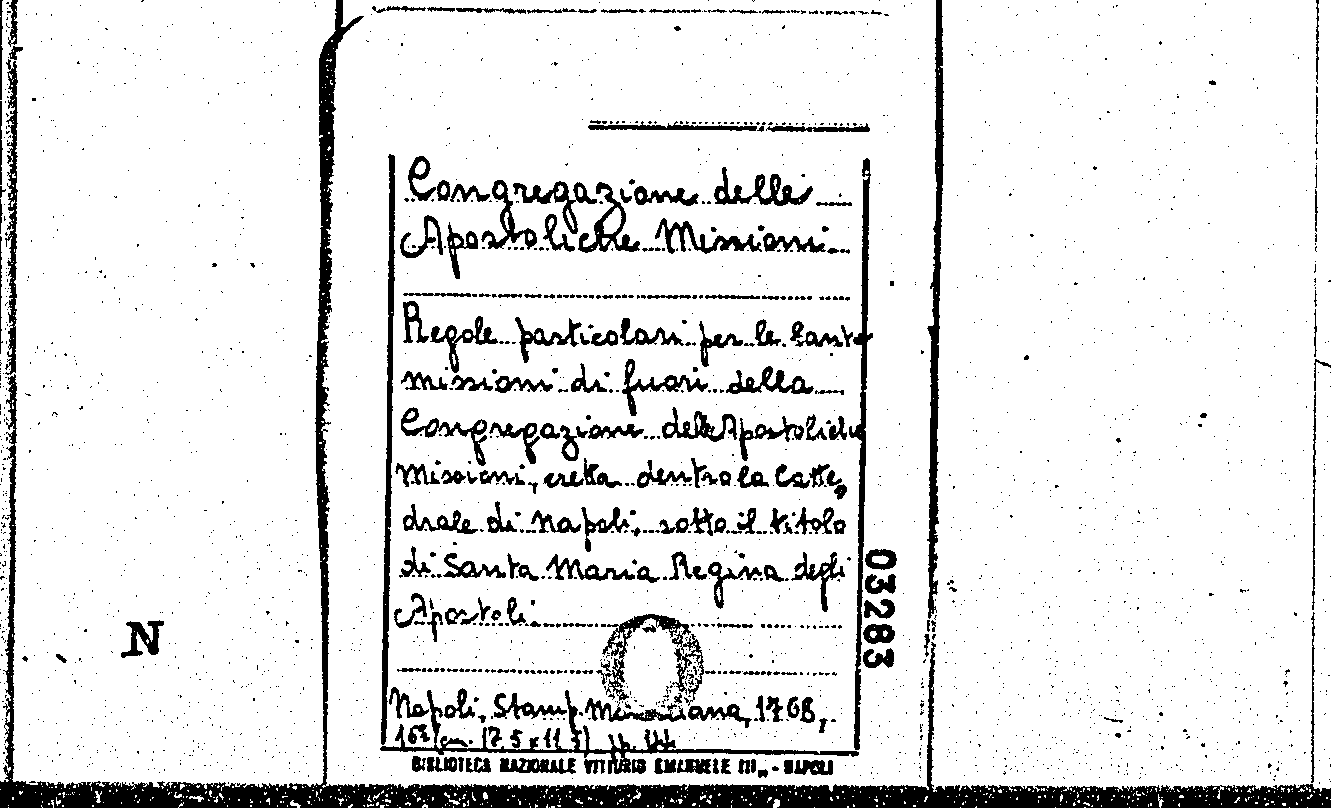 Congregazione delle
Apostoliche Missioni
Regole particolari per le Sante
missioni di fuori della
Congregazione delle Apostoliche
Missioni, eretta dentro la Catte,
drale di Napoli, sotto il titolo
di Santa Maria Regina degli
Apostoli.
Napoli, Stamp. 1768,
16° (cm. 17 5 x 11 5) pp.
BIBLIOTECA NAZIONALE VITTORIO EMANUELE III„ - NAPOLI
03283
N